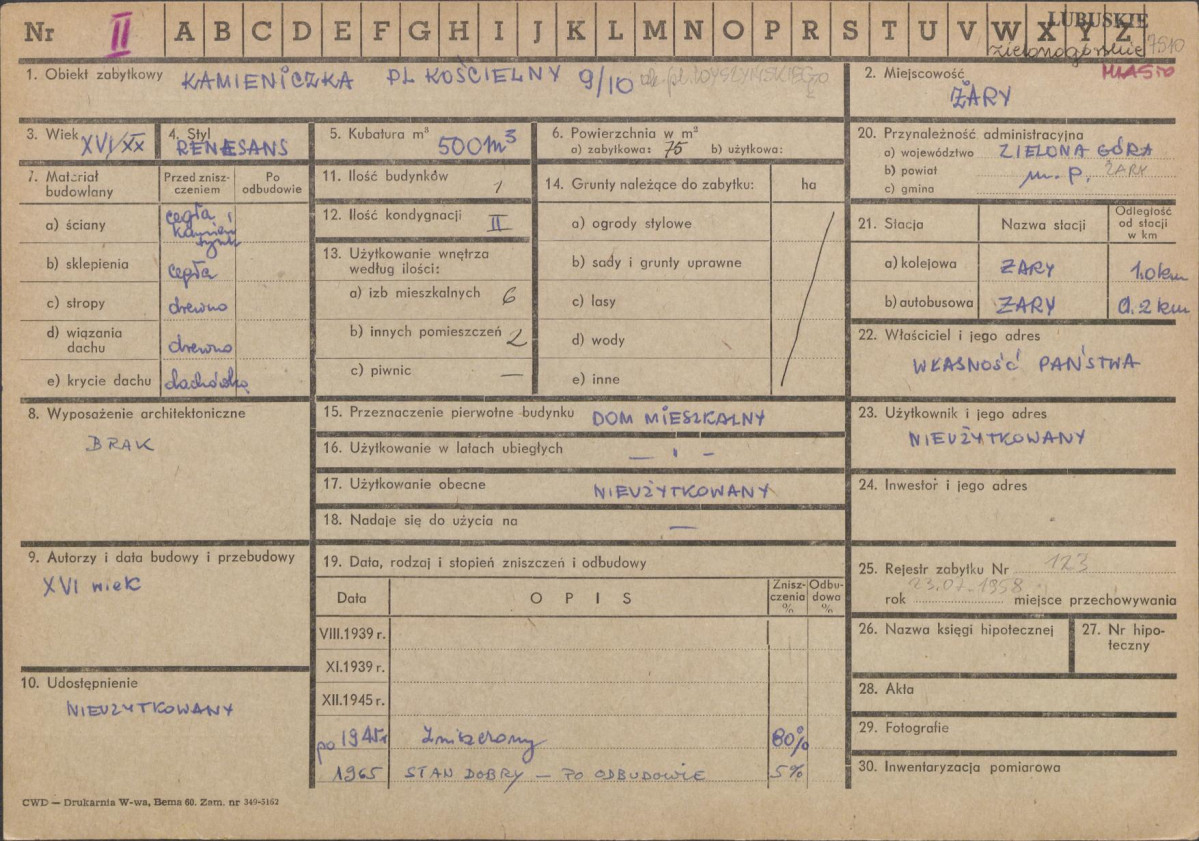 Nr II A B C D E F G H I J K L M N O P R S T U V W X Y Z
LUBUSKIE
zielonogórskie 7510
MIASTO
1. Obiekt zabytkowy KAMIENICZKA PL KOŚCIELNY 9/10 ob. pl. WYSZYŃSKIEGO
2. Miejscowość
ŻARY
3. Wiek XVI/XX
4. Styl
RENESANS
5. Kubatura m³ 500 m³
6. Powierzchnia w m²
a) zabytkowa: 75 b) użytkowa:
20. Przynależność administracyjna
a) województwo ZIELONA GÓRA
b) powiat m. p. ŻARY
c) gmina
7. Materiał budowlany
Przed znisz-
czeniem
Po
odbudowie
a) ściany cegła i
kamień
tynk
b) sklepienia cegła
c) stropy drewno
d) wiązania
dachu drewno
e) krycie dachu dachówka
11. Ilość budynków 1
12. Ilość kondygnacji II
13. Użytkowanie wnętrza
według ilości:
a) izb mieszkalnych 6
b) innych pomieszczeń 2
c) piwnic —
14. Grunty należące do zabytku: ha
a) ogrody stylowe
b) sady i grunty uprawne
c) lasy
d) wody
e) inne
21. Stacja Nazwa stacji
Odległość
od stacji
w km
a) kolejowa ŻARY 1.0 km
b) autobusowa ŻARY 0.2 km
22. Właściciel i jego adres
WŁASNOŚĆ PAŃSTWA
8. Wyposażenie architektoniczne
BRAK
15. Przeznaczenie pierwotne budynku DOM MIESZKALNY
16. Użytkowanie w latach ubiegłych — ı –
17. Użytkowanie obecne NIEUŻYTKOWANY
18. Nadaje się do użycia na —
23. Użytkownik i jego adres
NIEUŻYTKOWANY
24. Inwestor i jego adres
9. Autorzy i data budowy i przebudowy
XVI wiek
10. Udostępnienie
NIEUZYTKOWANY
19. Data, rodzaj i stopień zniszczeń i odbudowy
Data O P I S
Znisz-
czenia
%
Odbu-
dowa
%
VIII.1939 r.
XI.1939 r.
XII.1945 r.
po 1945r Zniszczony 80%
1965 STAN DOBRY — PO ODBUDOWIE 5%
25. Rejestr zabytku Nr 123
rok 23.07.1958 miejsce przechowywania
26. Nazwa księgi hipotecznej
27. Nr hipo-
teczny
28. Akta
29. Fotografie
30. Inwentaryzacja pomiarowa
CWD — Drukarnia W-wa, Bema 60. Zam. nr 349-5162